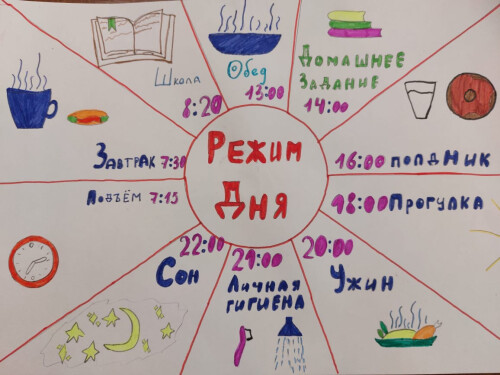 Режим
Дня
Подъём 7:15
Завтрак 7:30
Школа
8:20
Обед
13:00
Домашнее
Задание
14:00
16:00 полдник
18:00 Прогулка
20:00
Ужин
21:00
Личная
гигиена
22:00
Сон